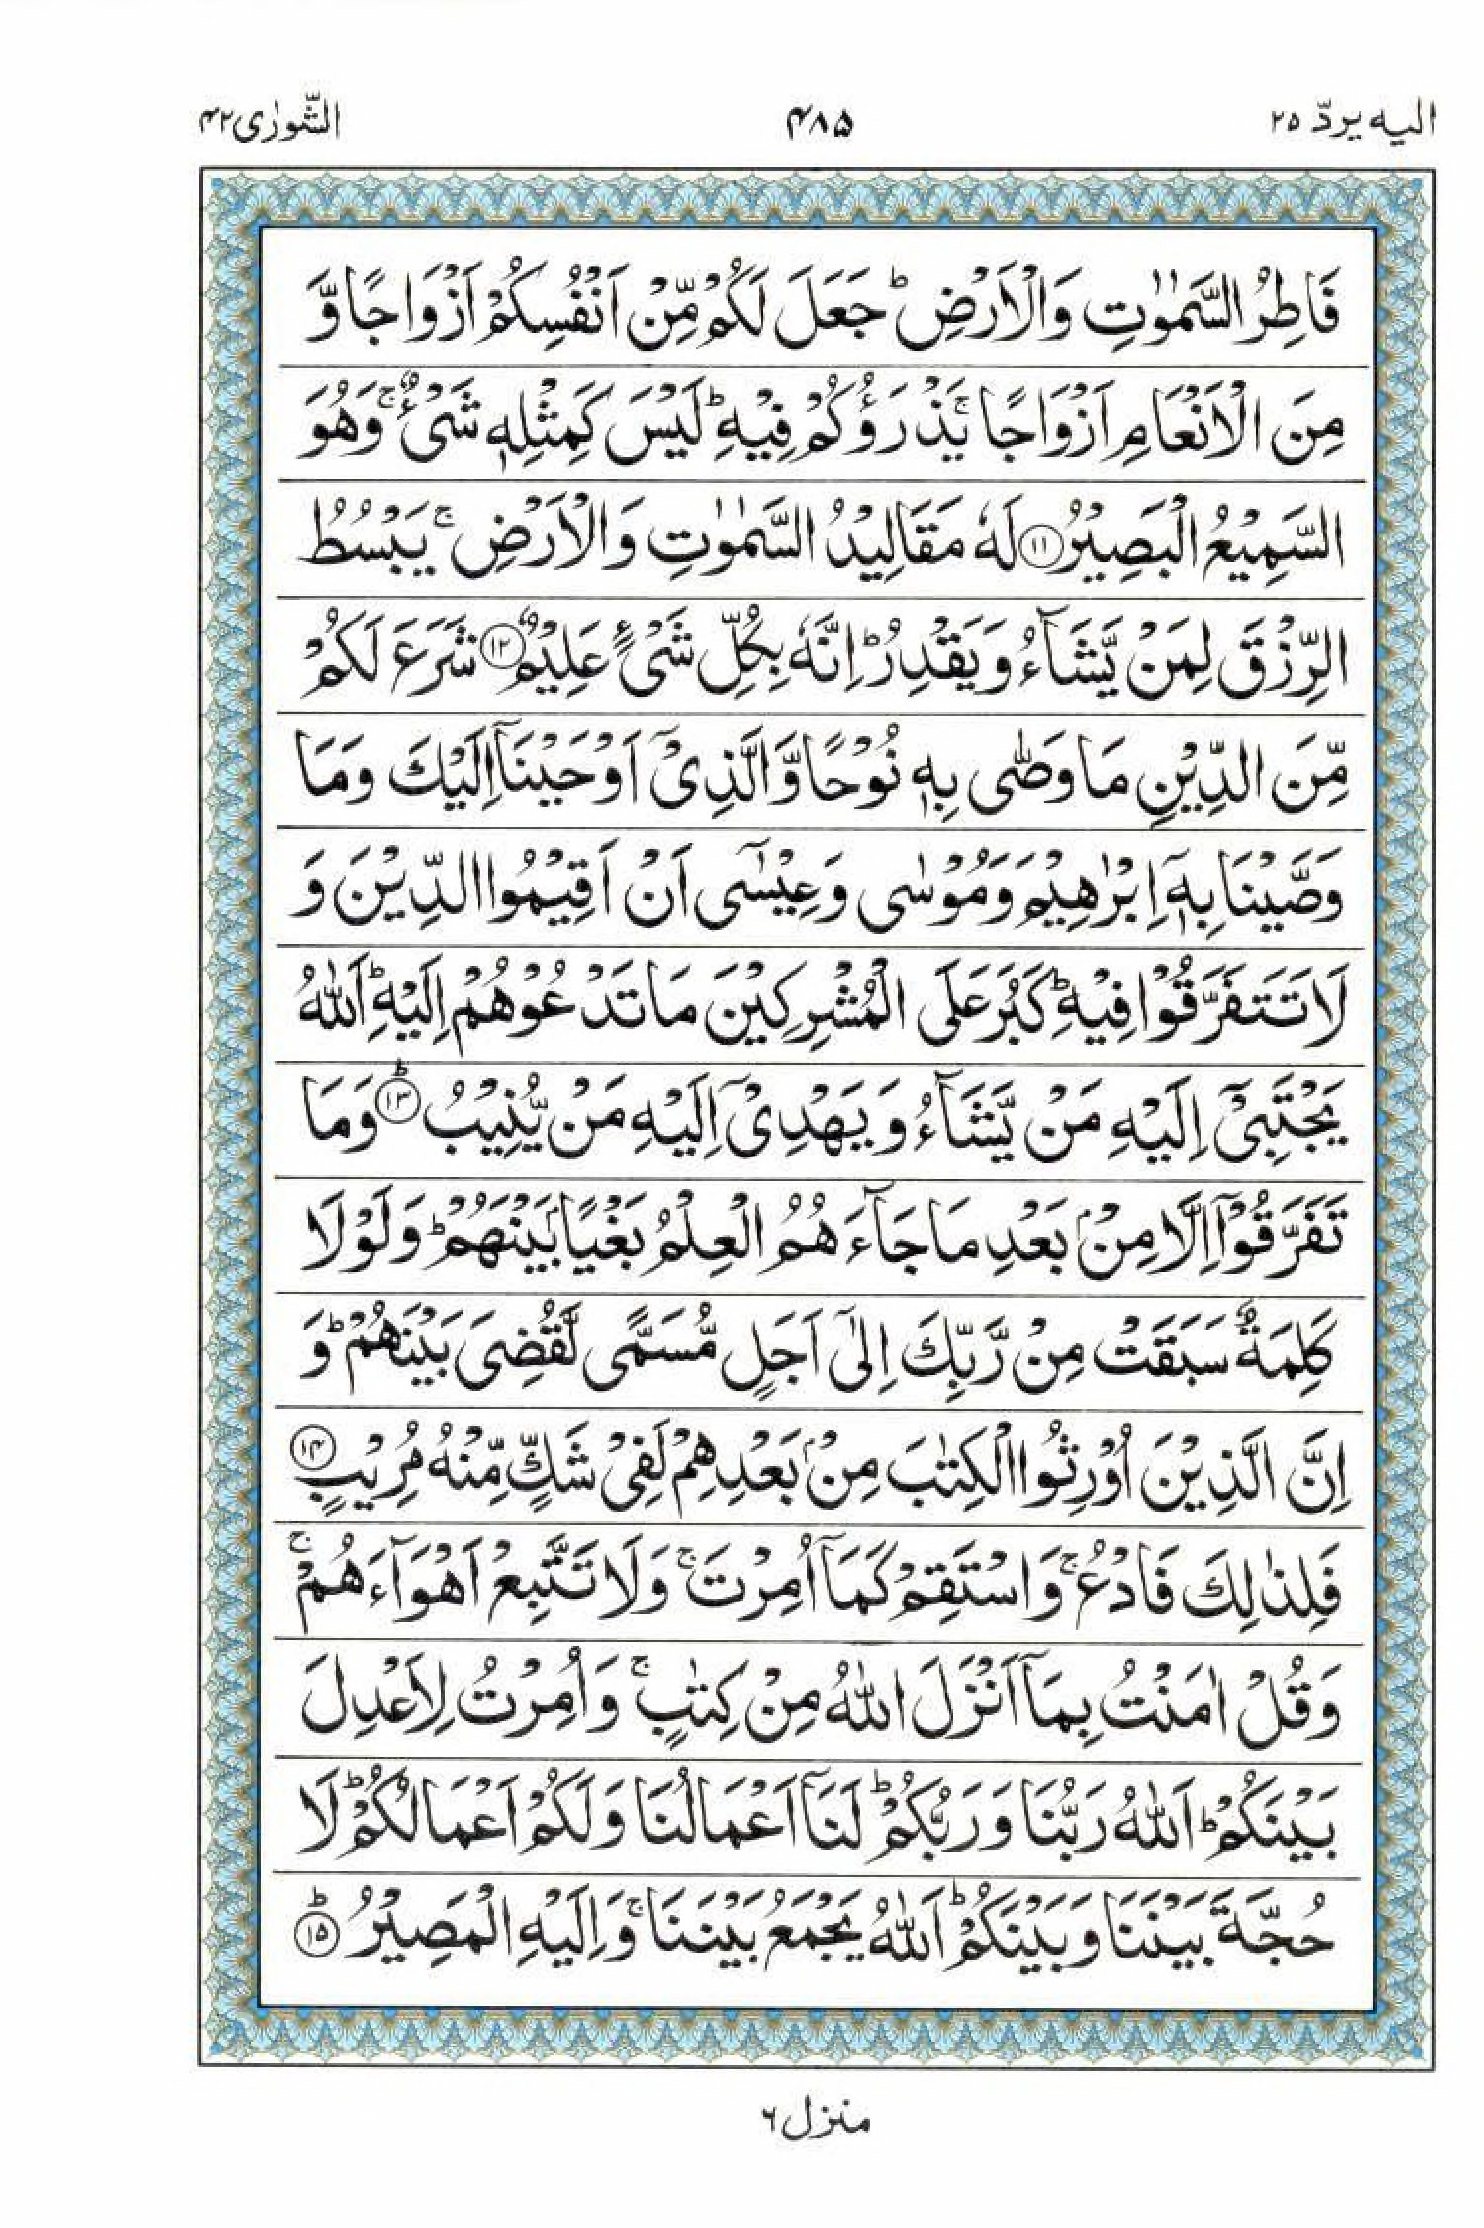 الیه یردّ ۲۵
۴۸۵
الشّورٰی ۴۲
فَاطِرُ السَّمٰوٰتِ وَالْاَرْضِ ؕ جَعَلَ لَكُمْ مِّنْ اَنْفُسِكُمْ اَزْوَاجًا وَّ
مِنَ الْاَنْعَامِ اَزْوَاجًا ۚ یَذْرَؤُكُمْ فِیْهِ ؕ لَیْسَ كَمِثْلِهٖ شَیْءٌ ۚ وَهُوَ
السَّمِیْعُ الْبَصِیْرُ ﴿۱۱﴾ لَهٗ مَقَالِیْدُ السَّمٰوٰتِ وَالْاَرْضِ ۚ یَبْسُطُ
الرِّزْقَ لِمَنْ یَّشَآءُ وَیَقْدِرُ ؕ اِنَّهٗ بِكُلِّ شَیْءٍ عَلِیْمٌ ﴿۱۲﴾ شَرَعَ لَكُمْ
مِّنَ الدِّیْنِ مَا وَصّٰی بِهٖ نُوْحًا وَّالَّذِیْۤ اَوْحَیْنَاۤ اِلَیْكَ وَمَا
وَصَّیْنَا بِهٖۤ اِبْرٰهِیْمَ وَمُوْسٰی وَعِیْسٰۤی اَنْ اَقِیْمُوا الدِّیْنَ وَ
لَا تَتَفَرَّقُوْا فِیْهِ ؕ كَبُرَ عَلَی الْمُشْرِكِیْنَ مَا تَدْعُوْهُمْ اِلَیْهِ ؕ اَللّٰهُ
یَجْتَبِیْۤ اِلَیْهِ مَنْ یَّشَآءُ وَیَهْدِیْۤ اِلَیْهِ مَنْ یُّنِیْبُ ؕ﴿۱۳﴾ وَمَا
تَفَرَّقُوْۤا اِلَّا مِنْۢ بَعْدِ مَا جَآءَهُمُ الْعِلْمُ بَغْیًۢا بَیْنَهُمْ ؕ وَلَوْلَا
كَلِمَةٌ سَبَقَتْ مِنْ رَّبِّكَ اِلٰۤی اَجَلٍ مُّسَمًّی لَّقُضِیَ بَیْنَهُمْ ؕ وَ
اِنَّ الَّذِیْنَ اُوْرِثُوا الْكِتٰبَ مِنْۢ بَعْدِهِمْ لَفِیْ شَكٍّ مِّنْهُ مُرِیْبٍ ﴿۱۴﴾
فَلِذٰلِكَ فَادْعُ ۚ وَاسْتَقِمْ كَمَاۤ اُمِرْتَ ۚ وَلَا تَتَّبِعْ اَهْوَآءَهُمْ ۚ
وَقُلْ اٰمَنْتُ بِمَاۤ اَنْزَلَ اللّٰهُ مِنْ كِتٰبٍ ۚ وَاُمِرْتُ لِاَعْدِلَ
بَیْنَكُمْ ؕ اَللّٰهُ رَبُّنَا وَرَبُّكُمْ ؕ لَنَاۤ اَعْمَالُنَا وَلَكُمْ اَعْمَالُكُمْ ؕ لَا
حُجَّةَ بَیْنَنَا وَبَیْنَكُمْ ؕ اَللّٰهُ یَجْمَعُ بَیْنَنَا ۚ وَاِلَیْهِ الْمَصِیْرُ ؕ﴿۱۵﴾
منزل ۶